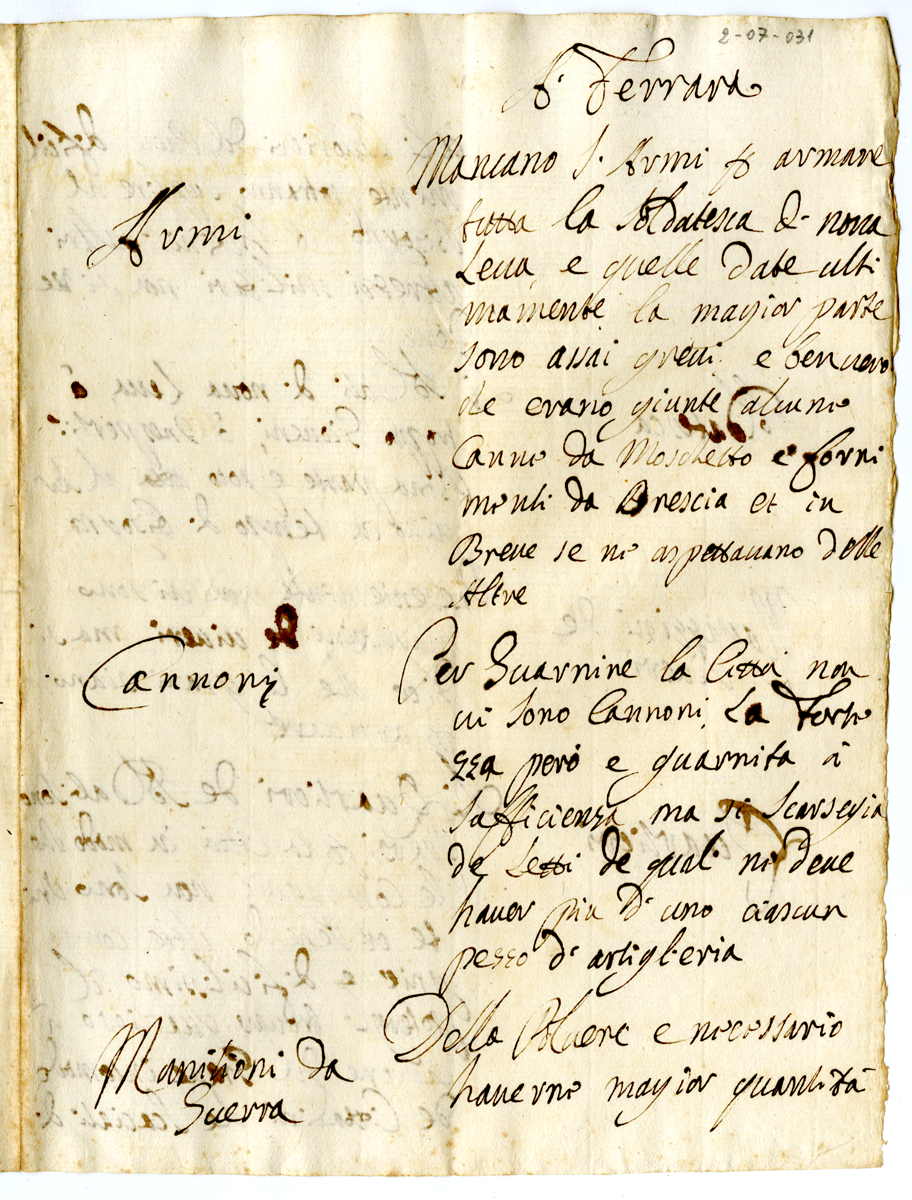 2-07-031
A Ferrara
Armi
Mancano l'Armi p armare
tutta la soldatesca di noua
Leua, e quelle date ulti
mamente la magior parte
sono assai greui e ben uero
che erano giunte alcune
Canne da Moschetto e forni
menti da Brescia et in
Breue se ne aspettauano delle
Altre
Cannonj
Per Guarnire la Città non
ui sono Cannoni, La Forte
zza però e guarnita à
sufficienza ma si scarsegia
de Letti de quali ne deue
hauer piu d'uno ciascun
pezzo di artiglieria
Monitioni da
Guerra
Della Poluere e necessario
hauerne magior quantità